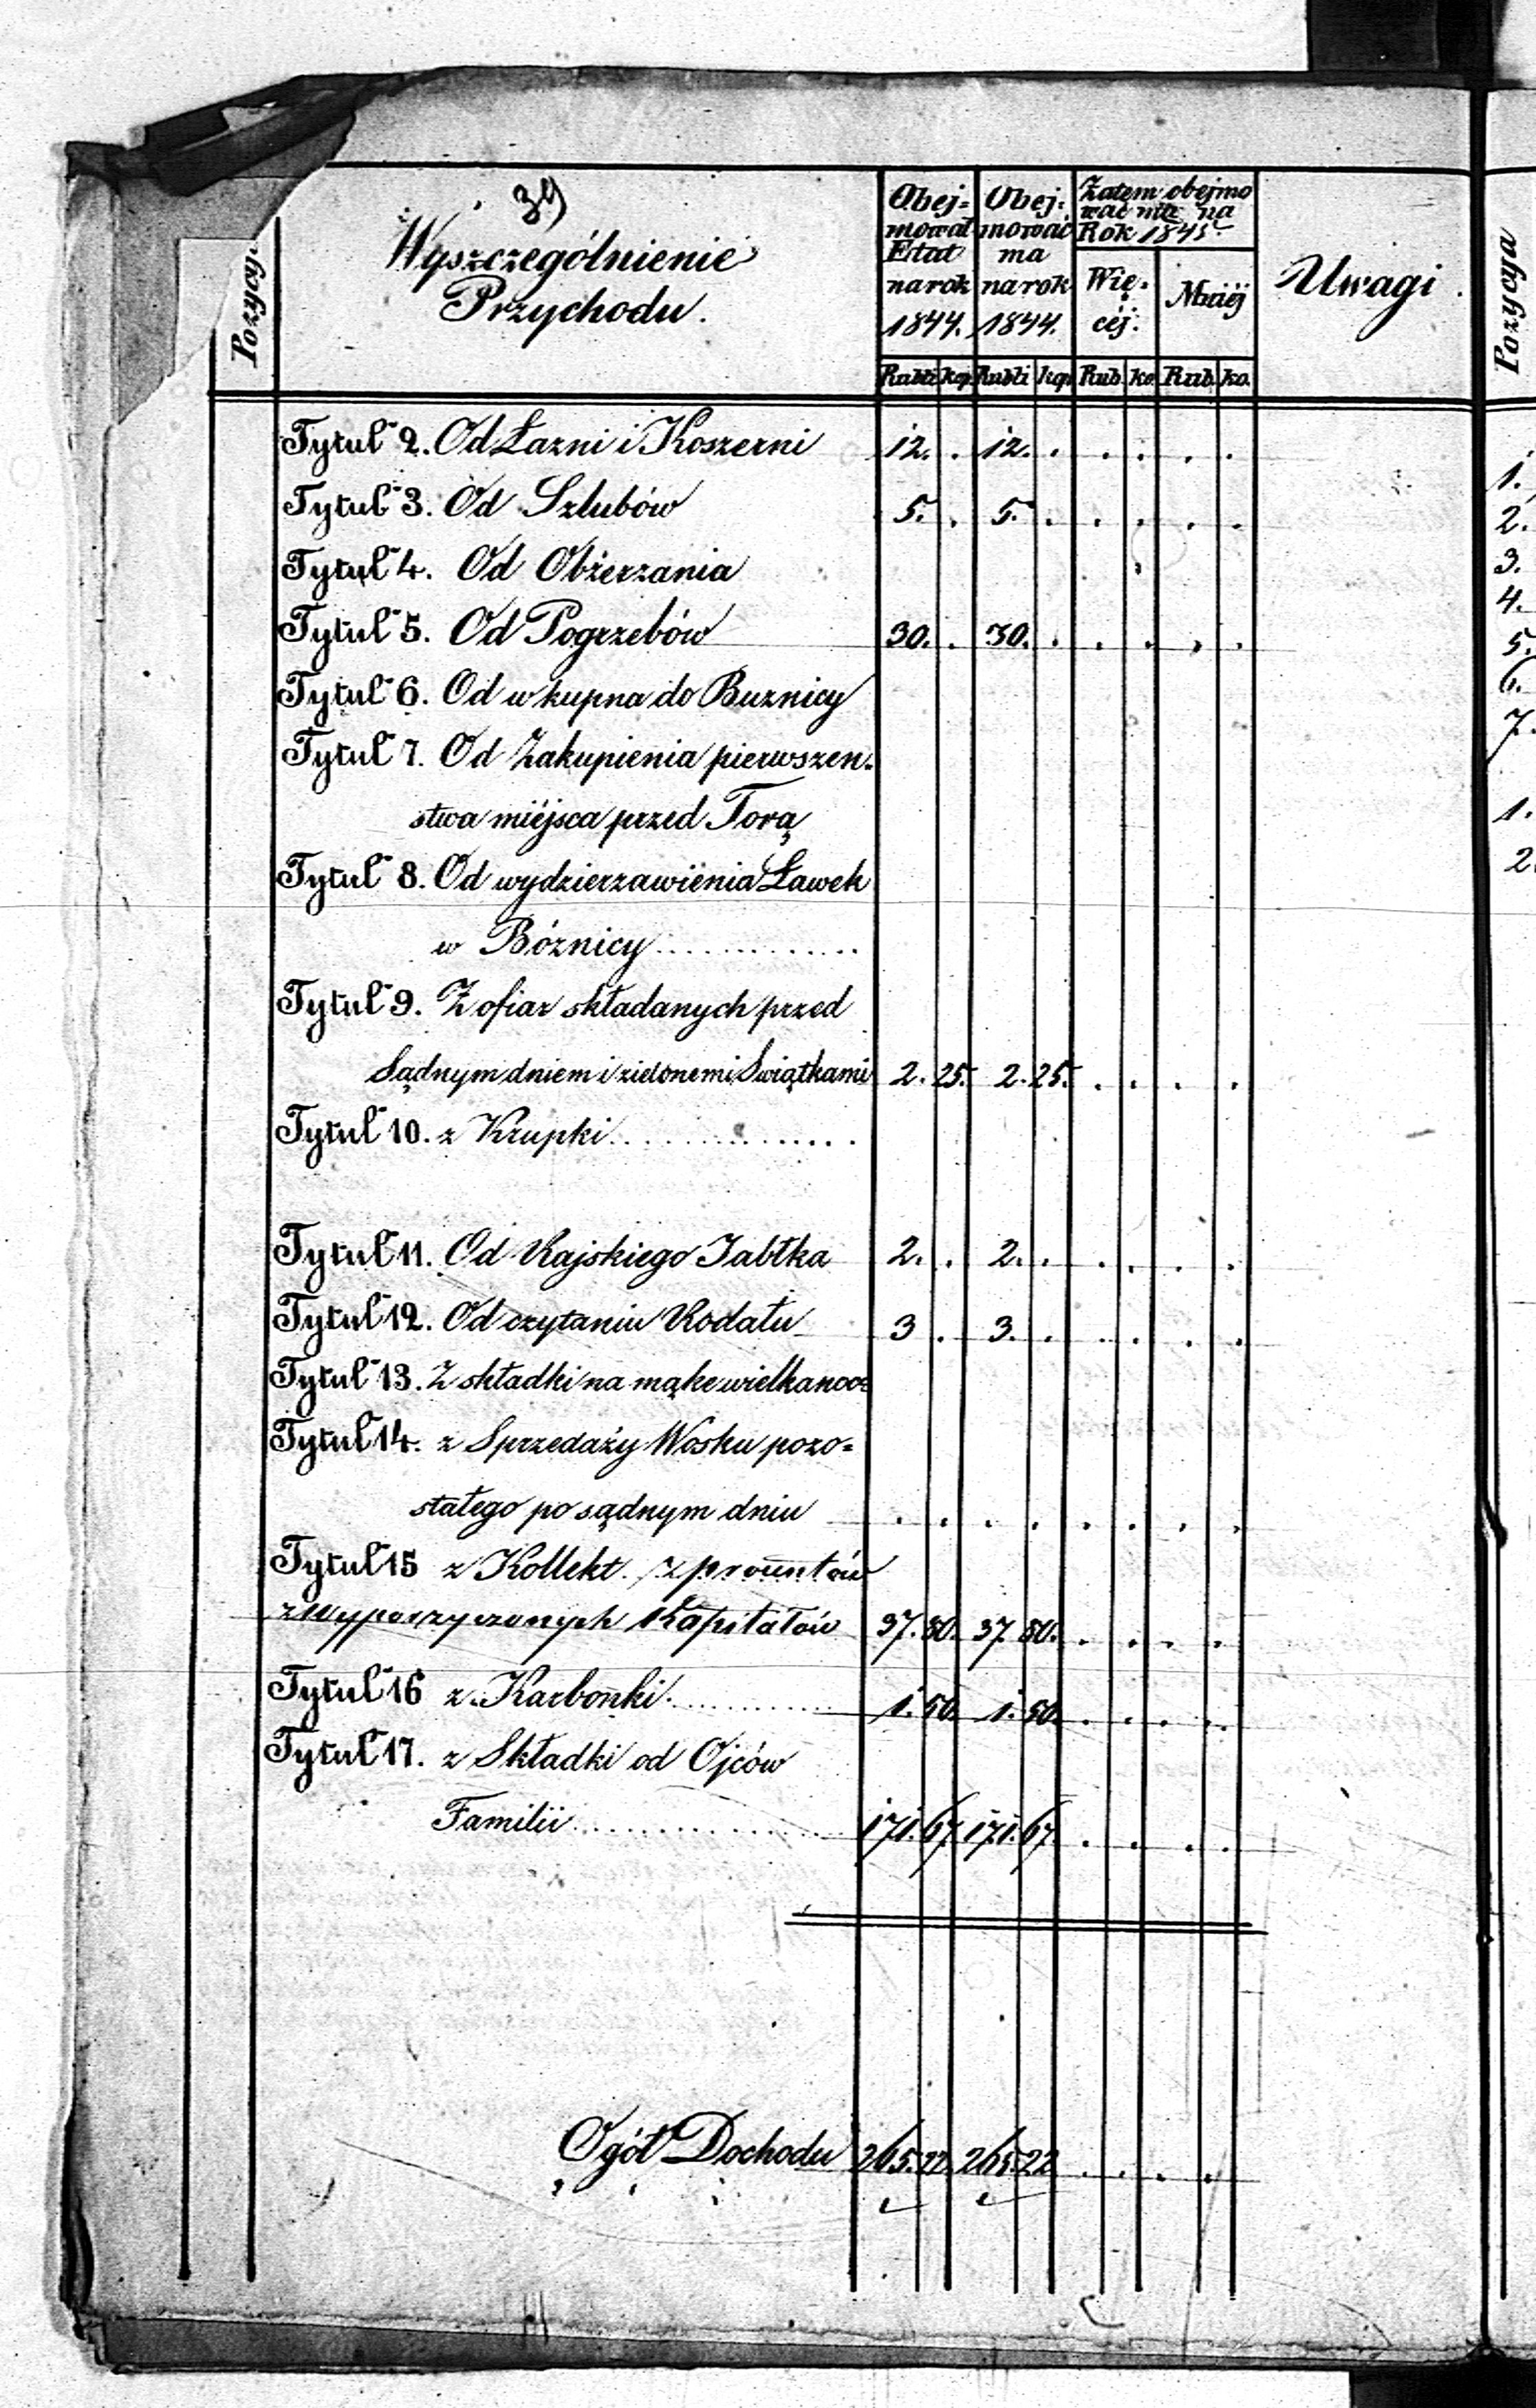 39
Pozycy.
Wyszczególnienie
Przychodu.
Obej-
mował
Etat
na rok
1844.
Obej-
mować
ma
na rok
1844.
Zatem obejmo
wać ma na
Rok 1845
Wię-
céj.
Mniéj
Uwagi
Rubli kop. Rubli kop. Rub. ko. Rub. ko.
Tytuł 2. Od Łazni i Koszerni 12. . 12. . . . . .
Tytuł 3. Od Szlubów 5. . 5. . . . . .
Tytuł 4. Od Obżerzania
Tytuł 5. Od Pogrzebów 30. . 30. . . . . .
Tytuł 6. Od wkupna do Buznicy
Tytuł 7. Od Zakupienia pierwszen-
stwa miéjsca przed Torą
Tytuł 8. Od wydzierzawiénia Ławek
w Bóznicy.............
Tytuł 9. Z ofiar składanych przed
Sądnym dniem i zielonemi Swiątkami 2. 25. 2. 25. . . . .
Tytuł 10. z Krupki..............
Tytuł 11. Od Rajskiego Jabłka 2. . 2. . . . . .
Tytuł 12. Od czytaniu Rodału 3 . 3. . . . . .
Tytuł 13. Z składki na mąke wielkanoc=
Tytuł 14. z Sprzedaży Wosku pozo=
stałego po sądnym dniu . . . . . . . .
Tytuł 15 z Kollekt. z procentów
z wyporzyczonych Kapitałów 37. 80. 37. 80. . . . .
Tytuł 16 z Karbonki........... 1. 50. 1. 50. . . . .
Tytuł 17. z Składki od Ojców
Familii............... 171. 67. 171. 67. . . . .
Ogół Dochodu 265. 22. 265. 22 . . . .
Pozycya
1.
2.
3.
4.
5.
6.
7.
1.
2.